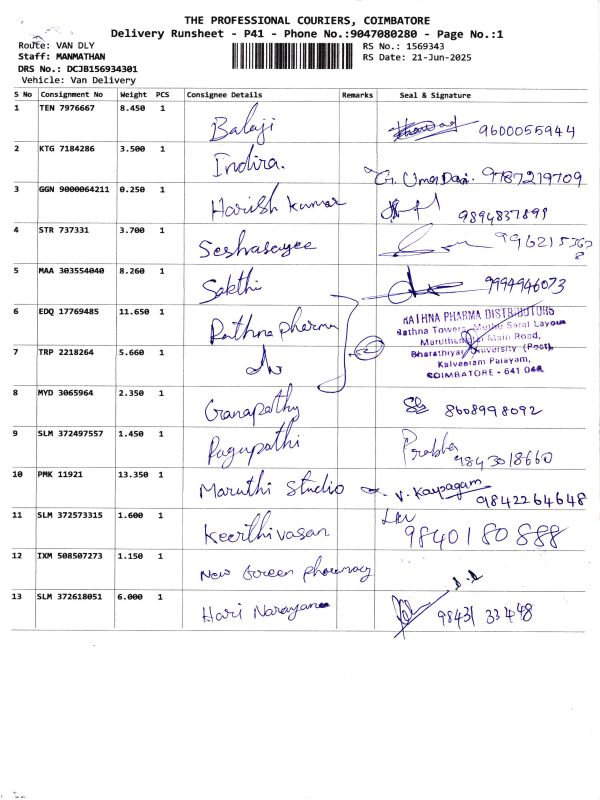 THE PROFESSIONAL COURIERS, COIMBATORE
Delivery Runsheet - P41 - Phone No.:9047080280 - Page No.:1
Route: VAN DLY
RS No.: 1569343
Staff: MANMATHAN
RS Date: 21-Jun-2025
DRS No.: DCJB156934301
Vehicle: Van Delivery
S No Consignment No Weight PCS Consignee Details Remarks Seal & Signature
1 TEN 7976667 8.450 1 Balaji 9600055944
2 KTG 7184286 3.500 1 Indira. G. Uma Devi. 9787219709
3 GGN 9000064211 0.250 1 Harish kumar 9894837899
4 STR 737331 3.700 1 Seshasayee
5 MAA 303554040 8.260 1 Sakthi 9994946073
6 EDQ 17769485 11.650 1 Rathna pharma
RATHNA PHARMA DISTRIBUTORS
Rathna Towers, Muthu Sarat Layout
Maruthamalai Main Road,
Bharathiyar University (Post),
Kalveeram Palayam,
COIMBATORE - 641 046.
7 TRP 2218264 5.660 1 do
8 MYD 3065964 2.350 1 Ganapathy 8608998092
9 SLM 372497557 1.450 1 Pasupathi Prabha 9843018660
10 PMK 11921 13.350 1 Maruthi Studio V. Karpagam 9842264648
11 SLM 372573315 1.600 1 Keerthivasan 9840180888
12 IXM 508507273 1.150 1 New Green pharmacy
13 SLM 372618051 6.000 1 Hari Narayana 98431 33448